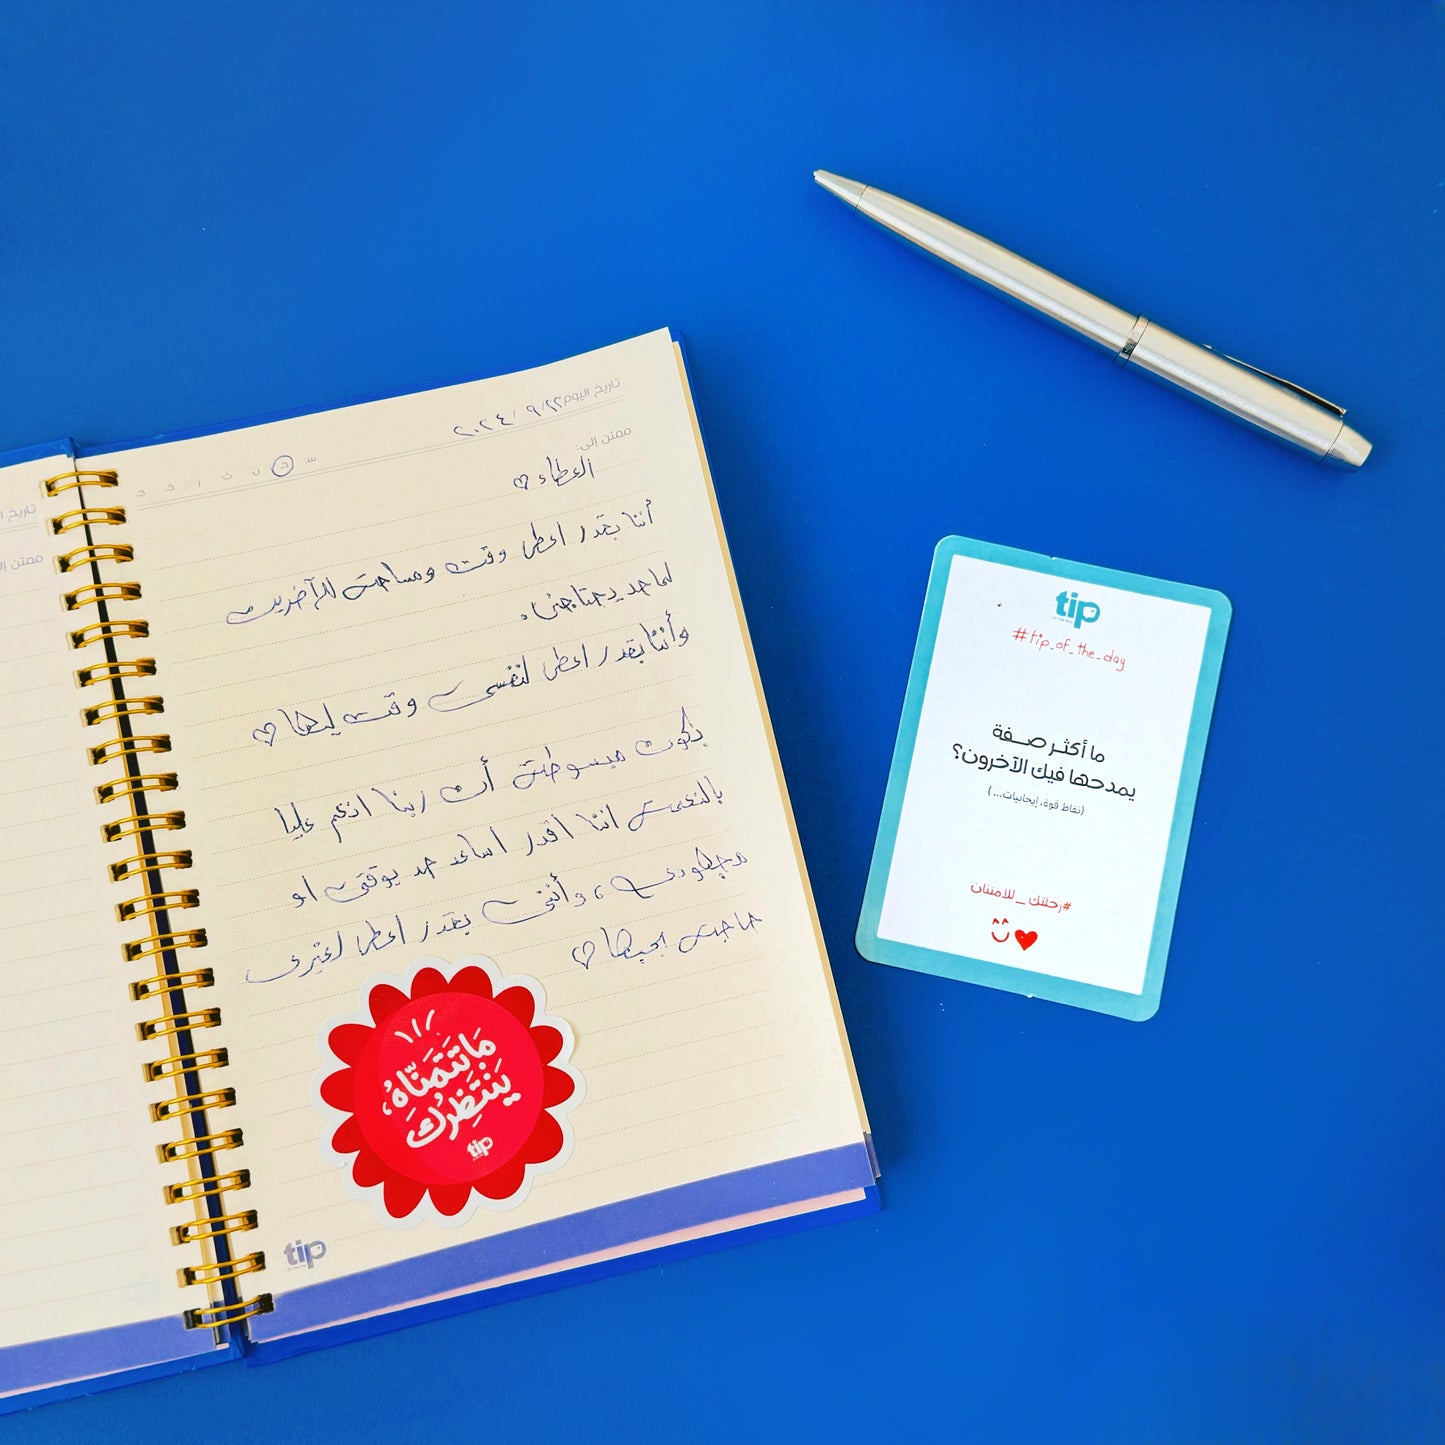 تاريخ اليوم ٢٢/ ٩ / ٢٠٢٤
س ح ن ث ر خ ج
ممتن إلى:
العطاء ♡
أننا بقدر اعطى وقت ومساحة للآخرين
لما حد يحتاجنى.
وأننا بقدر اعطى لنفسى وقت ليها ♡
بكون مبسوطة أن ربنا انعم عليا
بالنعمة اننا اقدر اساعد حد بوقتى او
مجهودى، وأننى بقدر اعطى لغيرى
حاجة بحبها ♡
مَا تَتَمَنَّاهُ،
يَنْتَظِرُكَ
tip
tip
تاريخ ا
ممتن إل
tip
#tip_of_the_day
ما أكثر صفة
يمدحها فيك الآخرون؟
(نقاط قوة، إيجابيات...)
#رحلتك_للامتنان